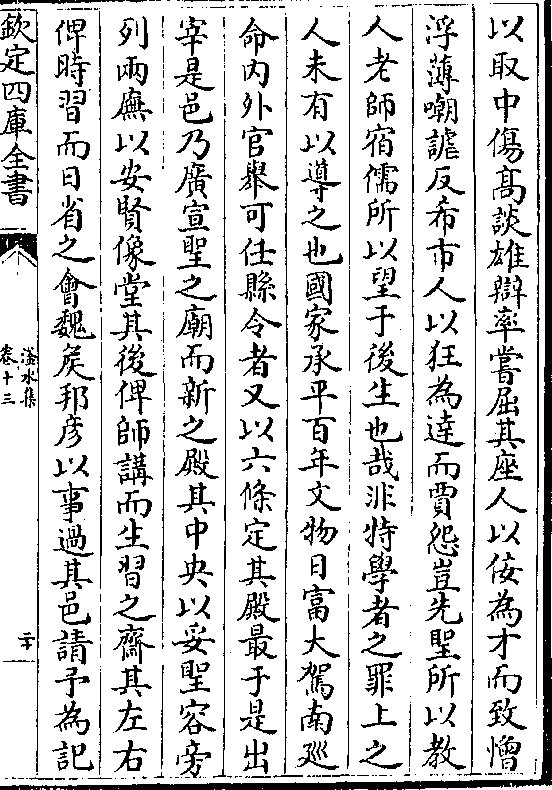 以取中傷髙談雄辯率嘗屈其座人以佞為才而致憎
浮薄嘲謔反希市人以狂為達而賈怨豈先聖所以教
人老師宿儒所以望于後生也哉非特學者之罪上之
人未有以導之也國家承平百年文物日富大駕南廵
命内外官舉可任縣令者又以六條定其殿最于是出
宰是邑乃廣宣聖之廟而新之殿其中央以妥聖容旁
列兩廡以安賢像堂其後俾師講而生習之齋其左右
俾時習而日省之會魏矦邦彦以事過其邑請予為記
欽定四庫全書
滏水集
卷十三
二十